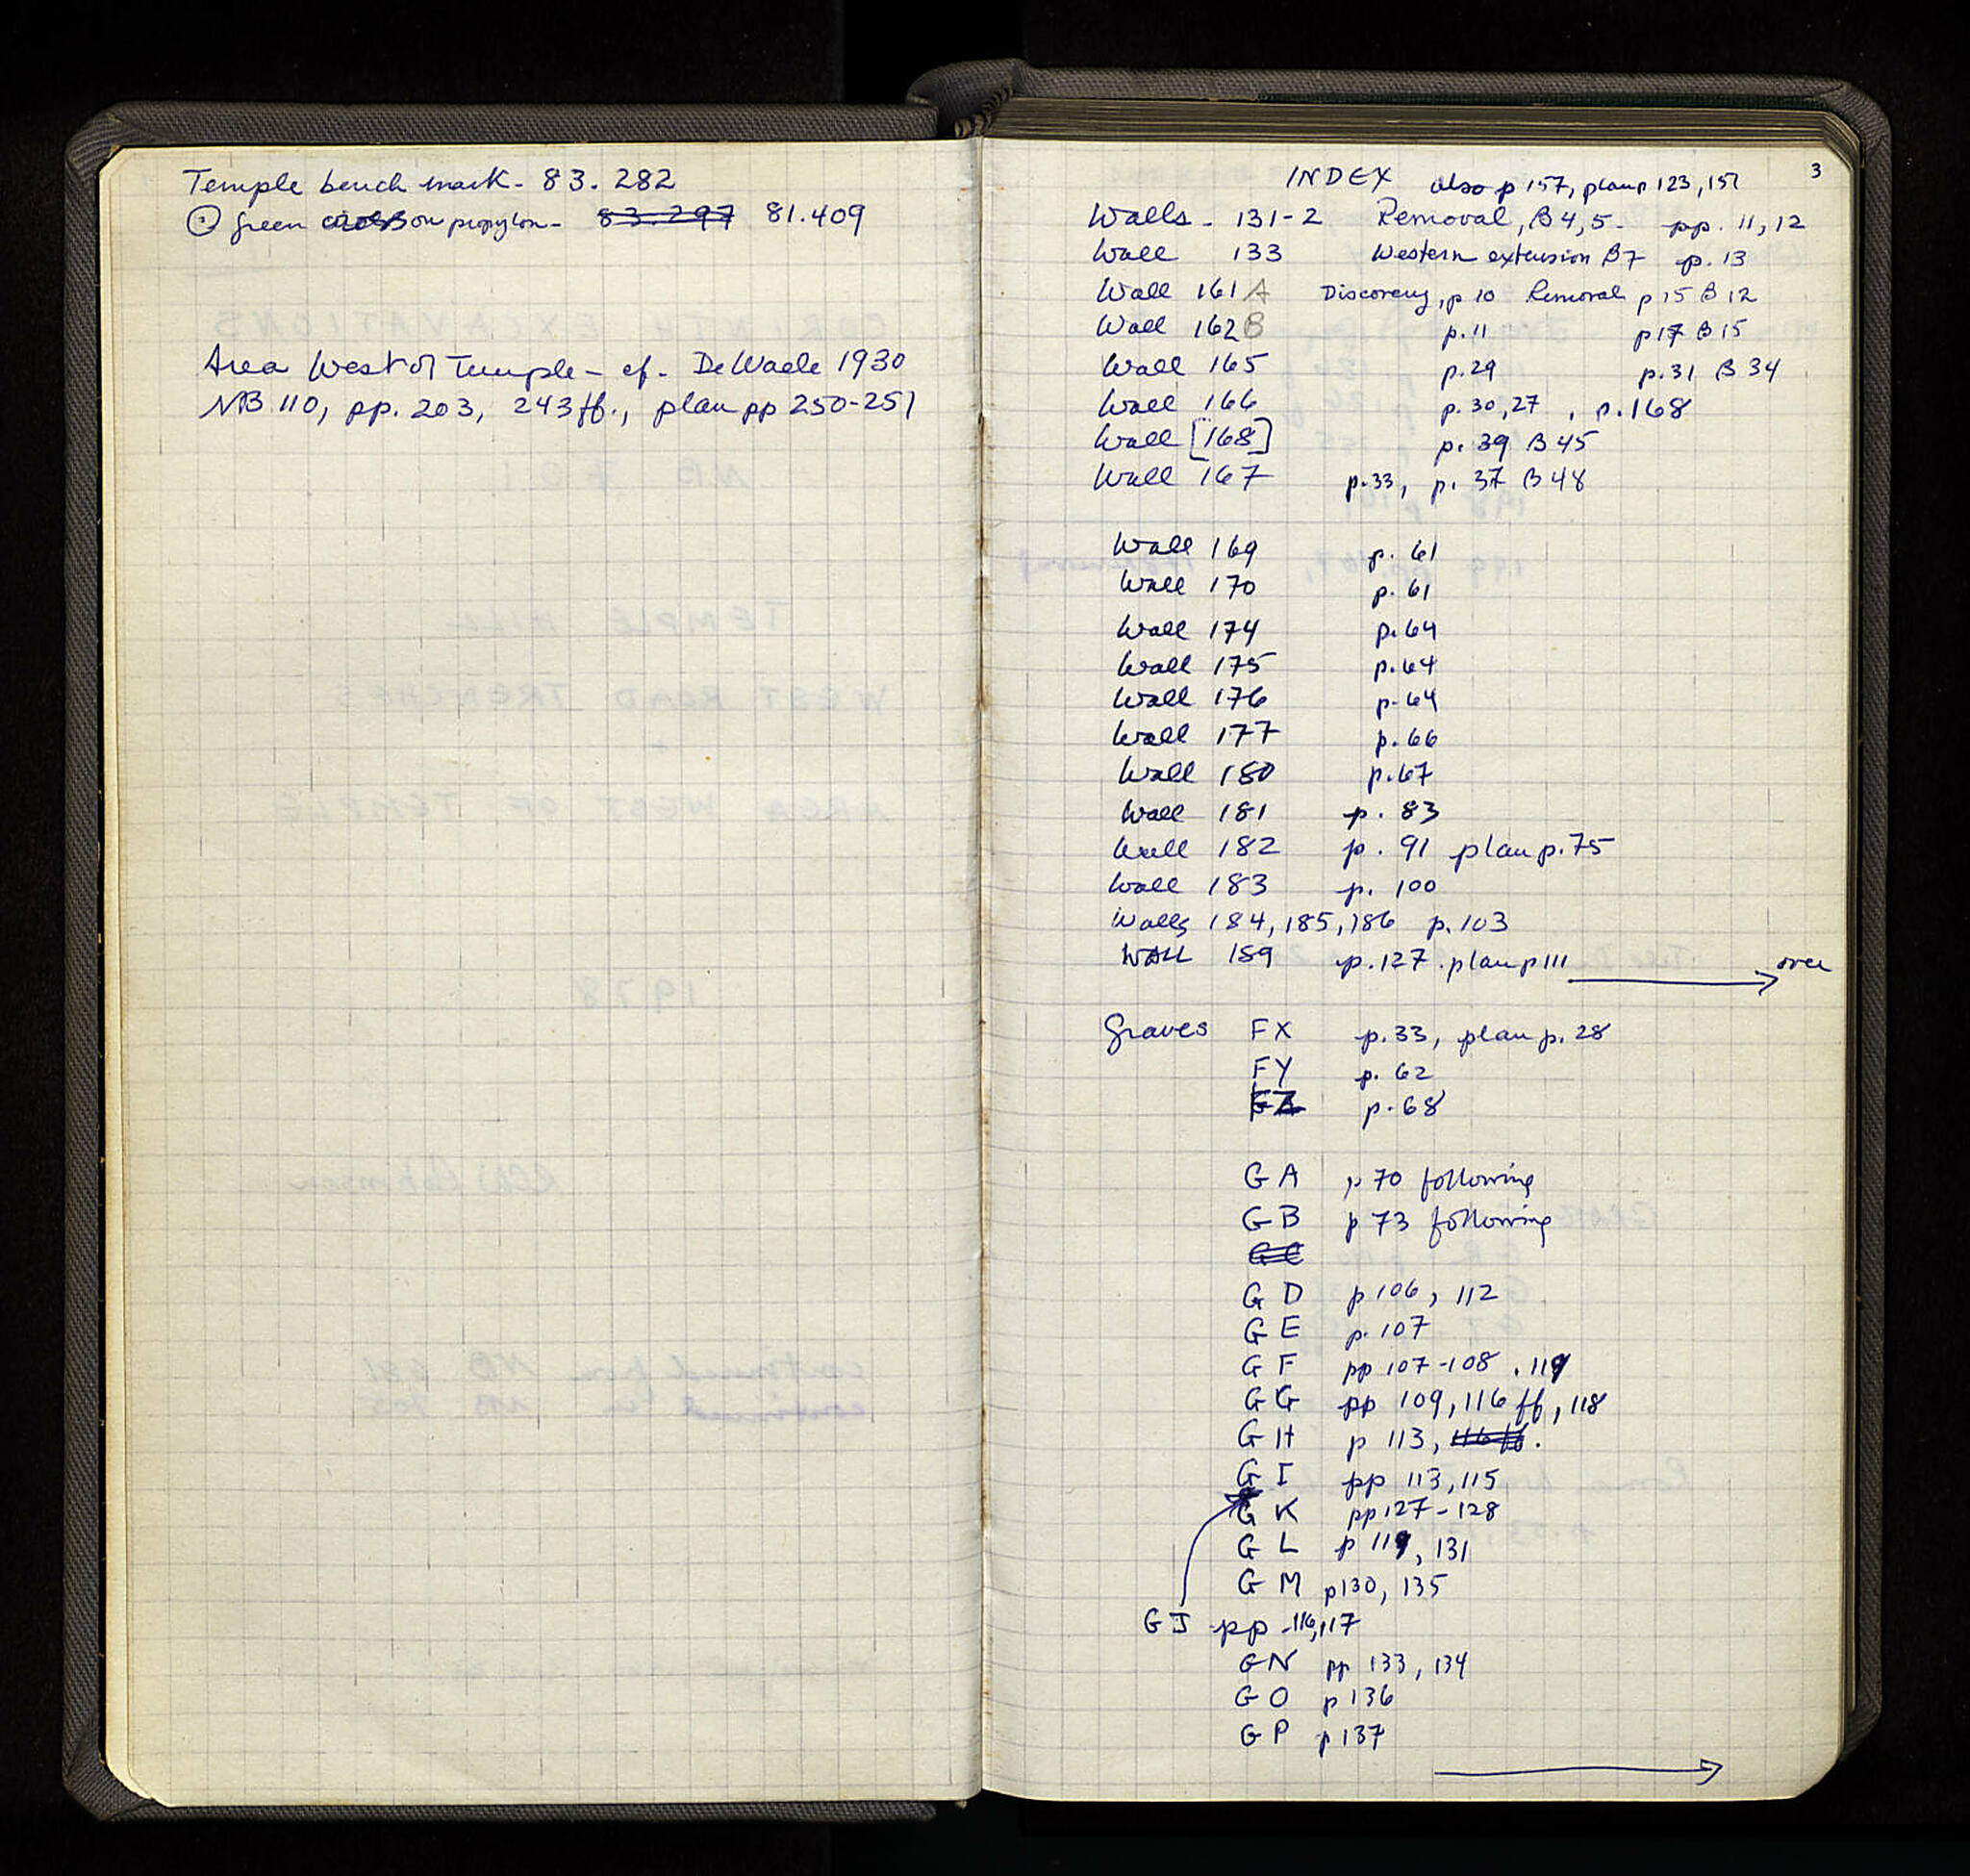 Temple bench mark - 83.282
⊙ green cross on propylon - 83.297 81.409
Area West of Temple - cf. De Waele 1930
NB 110, pp. 203, 243ff., plan pp 250-251
3
INDEX also p 157, plan p 123, 151
Walls - 131-2 Removal, B 4, 5 - pp. 11, 12
Wall 133 Western extension B7 p. 13
Wall 161 A Discovery, p 10 Removal p 15 B 12
Wall 162 B p. 11 p 17 B 15
Wall 165 p. 29 p. 31 B 34
Wall 166 p. 30, 27, p. 168
Wall [168] p. 39 B 45
Wall 167 p. 33, p. 37 B 48
Wall 169 p. 61
Wall 170 p. 61
Wall 174 p. 64
Wall 175 p. 64
Wall 176 p. 64
Wall 177 p. 66
Wall 180 p. 67
Wall 181 p. 83
Wall 182 p. 91 plan p. 75
Wall 183 p. 100
Walls 184, 185, 186 p. 103
WALL 189 p. 127. plan p 111 → over
Graves FX p. 33, plan p. 28
FY p. 62
FZ p. 68
GA p 70 following
GB p 73 following
GC
GD p 106, 112
GE p. 107
GF pp 107-108, 119
GG pp 109, 116 ff, 118
GH p 113, 116 ff.
GI pp 113, 115
GK pp 127-128
GL p 119, 131
GM p 130, 135
GJ pp 116, 117
GN pp 133, 134
GO p 136
GP p 137
→